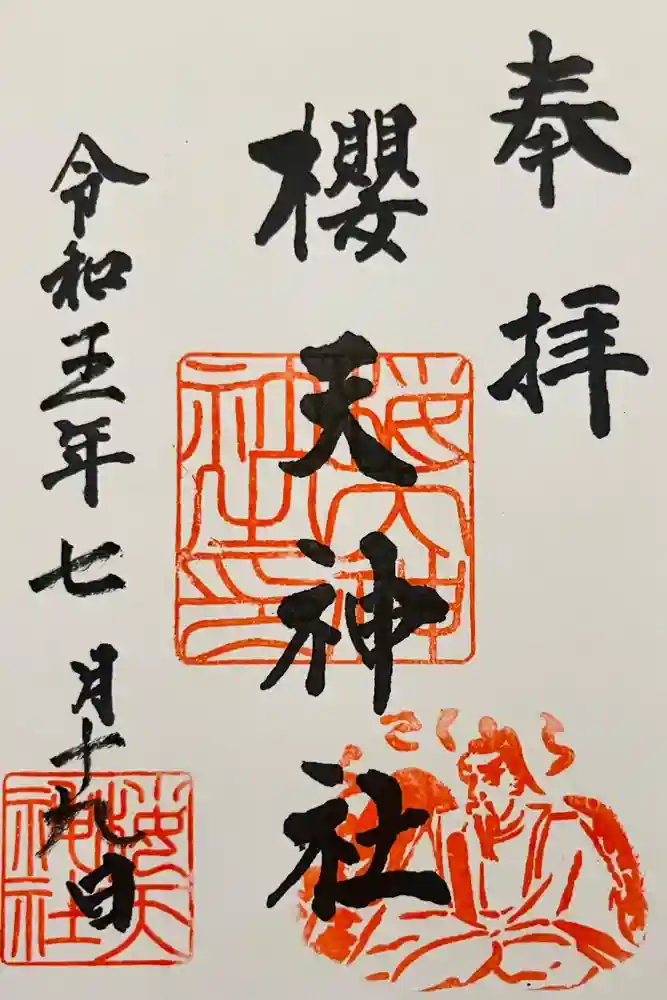 奉拝
櫻天神社
令和五年七月十九日
櫻天神社印
さくら
櫻天神社